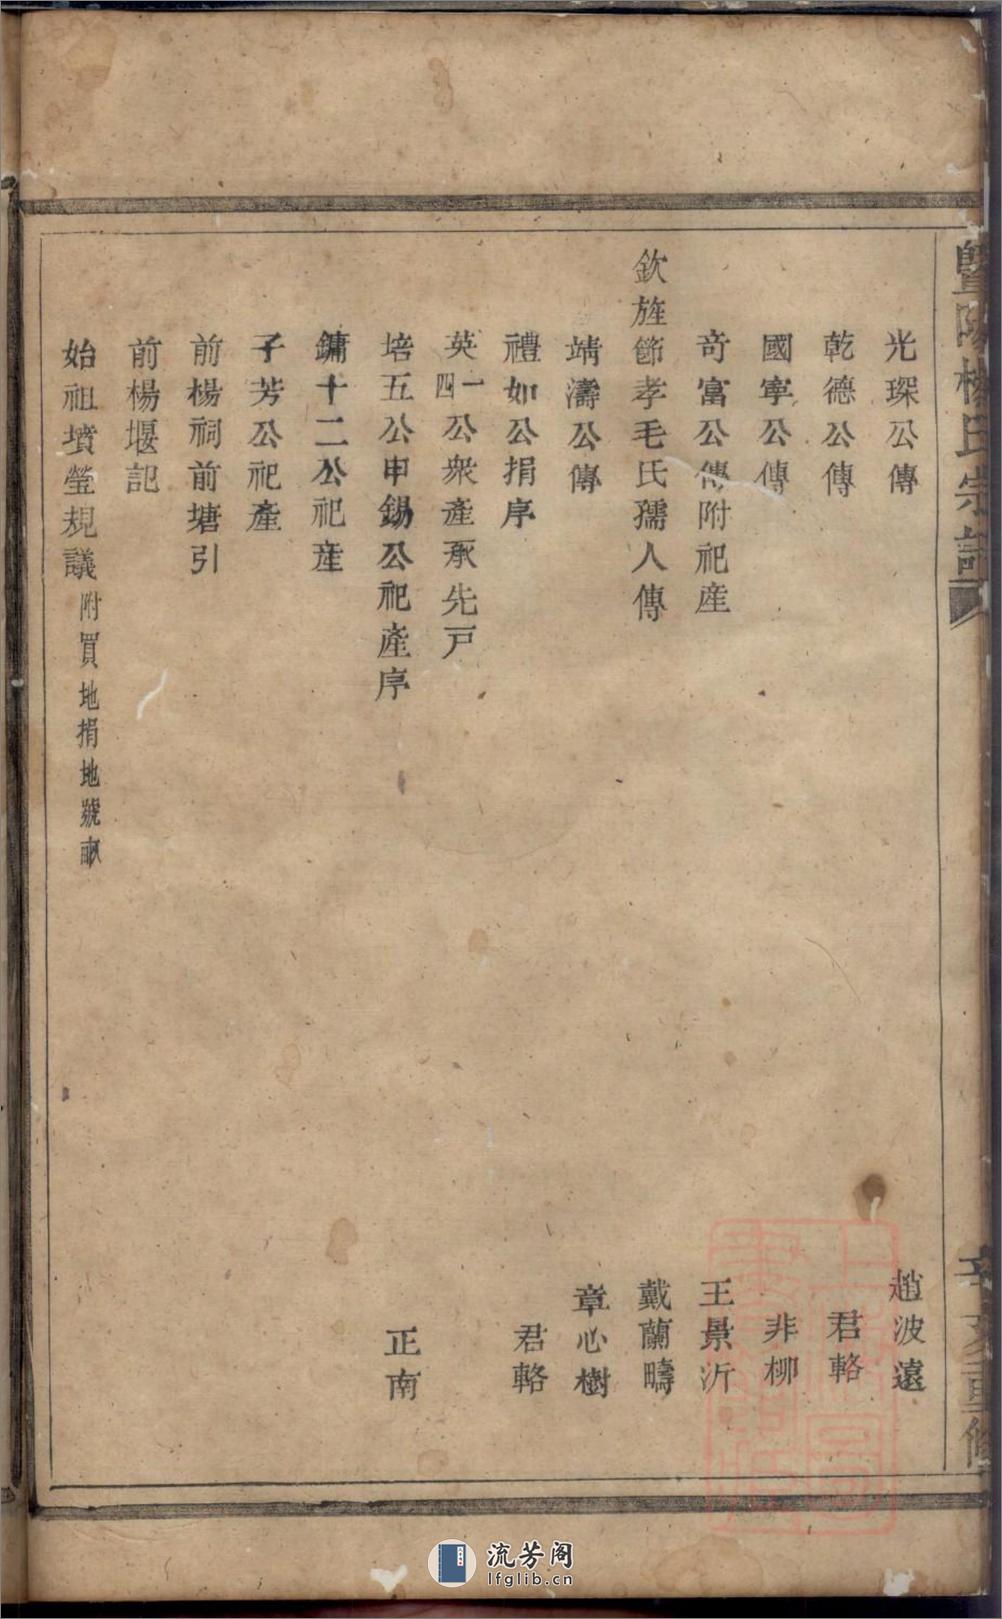 暨陽楊氏宗譜
辛亥重修
光琛公傳 趙波遠
乾德公傳 君輅
國寧公傳 非柳
奇富公傳附祀産 王景沂
欽旌節孝毛氏孺人傳 戴蘭疇
靖濤公傳 章心樹
禮如公捐序 君輅
英一四公衆產承先戸
培五公申錫公祀產序 正南
鏞十二公祀産
子芳公祀產
前楊祠前塘引
前楊堰記
始祖墳塋規議附買地捐地號畝
流芳阁
lfglib.cn